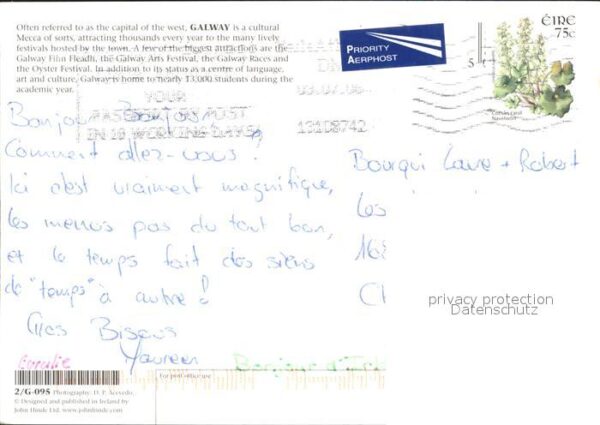 Often referred to as the capital of the west, GALWAY is a cultural
Mecca of sorts, attracting thousands every year to the many lively
festivals hosted by the town. A few of the biggest attractions are the
Galway Film Fleadh, the Galway Arts Festival, the Galway Races and
the Oyster Festival. In addition to its status as a centre of language,
art and culture, Galway is home to nearly 13,000 students during the
academic year.
PRIORITY
AERPHOST
ÉIRE
75c
YOUR
PASSPORT MUST
IN 10 WORKING DAYS!
Bonjour Bonjour
Comment allez-vous ?
Ici c'est vraiment magnifique,
les menus pas du tout bon,
et le temps fait des siens
de "temps" à autre !
Gros Bisous
Maureen
Emilie
Bonjour d'
Bourqui Laure + Robert
Les
privacy protection
Datenschutz
For post office use
2/G-095 Photography: D. P. Acevedo.
© Designed and published in Ireland by
John Hinde Ltd. www.johnhinde.com